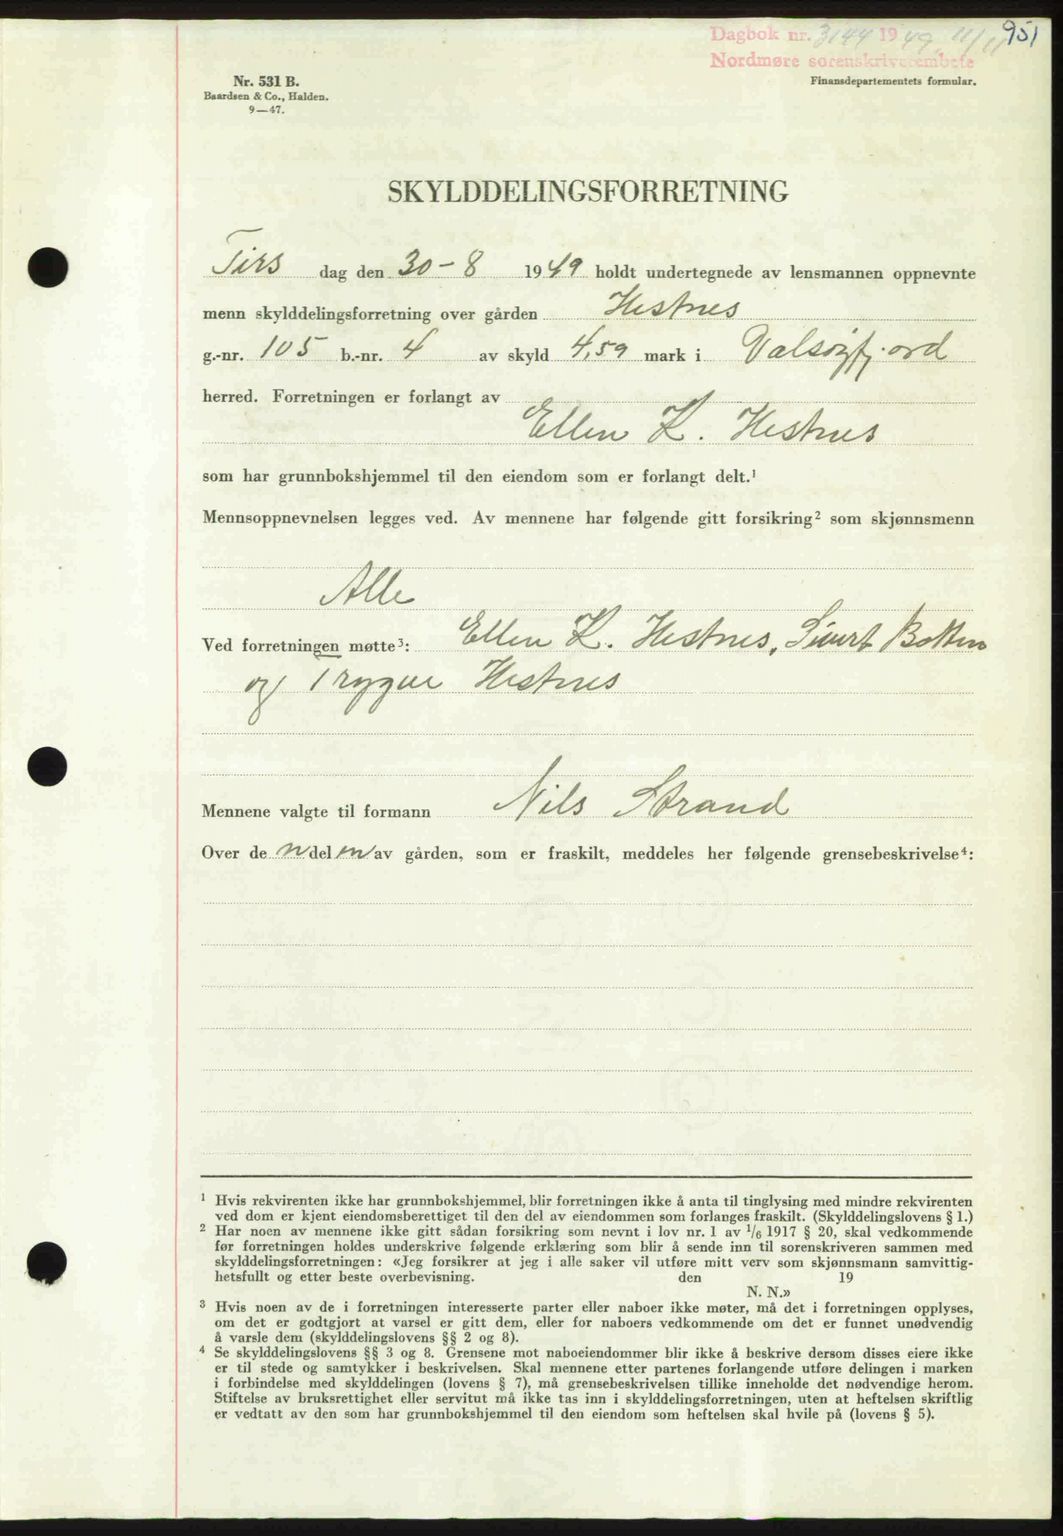 951
Dagbok nr. 3144 1949 11/11
Nordmøre sorenskriverembete
Nr. 531 B.
Baardsen & Co., Halden.
9—47.
Finansdepartementets formular.
SKYLDDELINGSFORRETNING
Tirs dag den 30-8 1949 holdt undertegnede av lensmannen oppnevnte
menn skylddelingsforretning over gården Hestnes
g.-nr. 105 b.-nr. 4 av skyld 4,59 mark i Valsøyfjord
herred. Forretningen er forlangt av
Ellen K. Hestnes
som har grunnbokshjemmel til den eiendom som er forlangt delt.¹
Mennsoppnevnelsen legges ved. Av mennene har følgende gitt forsikring² som skjønnsmenn
Alle
Ved forretningen møtte³: Ellen K. Hestnes, Sivert Botten
og Trygve Hestnes
Mennene valgte til formann Nils Strand
Over den delen av gården, som er fraskilt, meddeles her følgende grensebeskrivelse⁴:
¹ Hvis rekvirenten ikke har grunnbokshjemmel, blir forretningen ikke å anta til tinglysing med mindre rekvirenten
ved dom er kjent eiendomsberettiget til den del av eiendommen som forlanges fraskilt. (Skylddelingslovens § 1.)
² Har noen av mennene ikke gitt sådan forsikring som nevnt i lov nr. 1 av 1/6 1917 § 20, skal vedkommende
før forretningen holdes underskrive følgende erklæring som blir å sende inn til sorenskriveren sammen med
skylddelingsforretningen: «Jeg forsikrer at jeg i alle saker vil utføre mitt verv som skjønnsmann samvittig-
hetsfullt og etter beste overbevisning. den 19
N. N.»
³ Hvis noen av de i forretningen interesserte parter eller naboer ikke møter, må det i forretningen opplyses,
om det er godtgjort at varsel er gitt dem, eller for naboers vedkommende om det er funnet unødvendig
å varsle dem (skylddelingslovens §§ 2 og 8).
⁴ Se skylddelingslovens §§ 3 og 8. Grensene mot naboeiendommer blir ikke å beskrive dersom disses eiere ikke
er til stede og samtykker i beskrivelsen. Skal mennene etter partenes forlangende utføre delingen i marken
i forbindelse med skylddelingen (lovens § 7), må grensebeskrivelsen tillike inneholde det nødvendige herom.
Stiftelse av bruksrettighet eller servitut må ikke tas inn i skylddelingsforretningen, uten at heftelsen skriftlig
er vedtatt av den som har grunnbokshjemmel til den eiendom som heftelsen skal hvile på (lovens § 5).